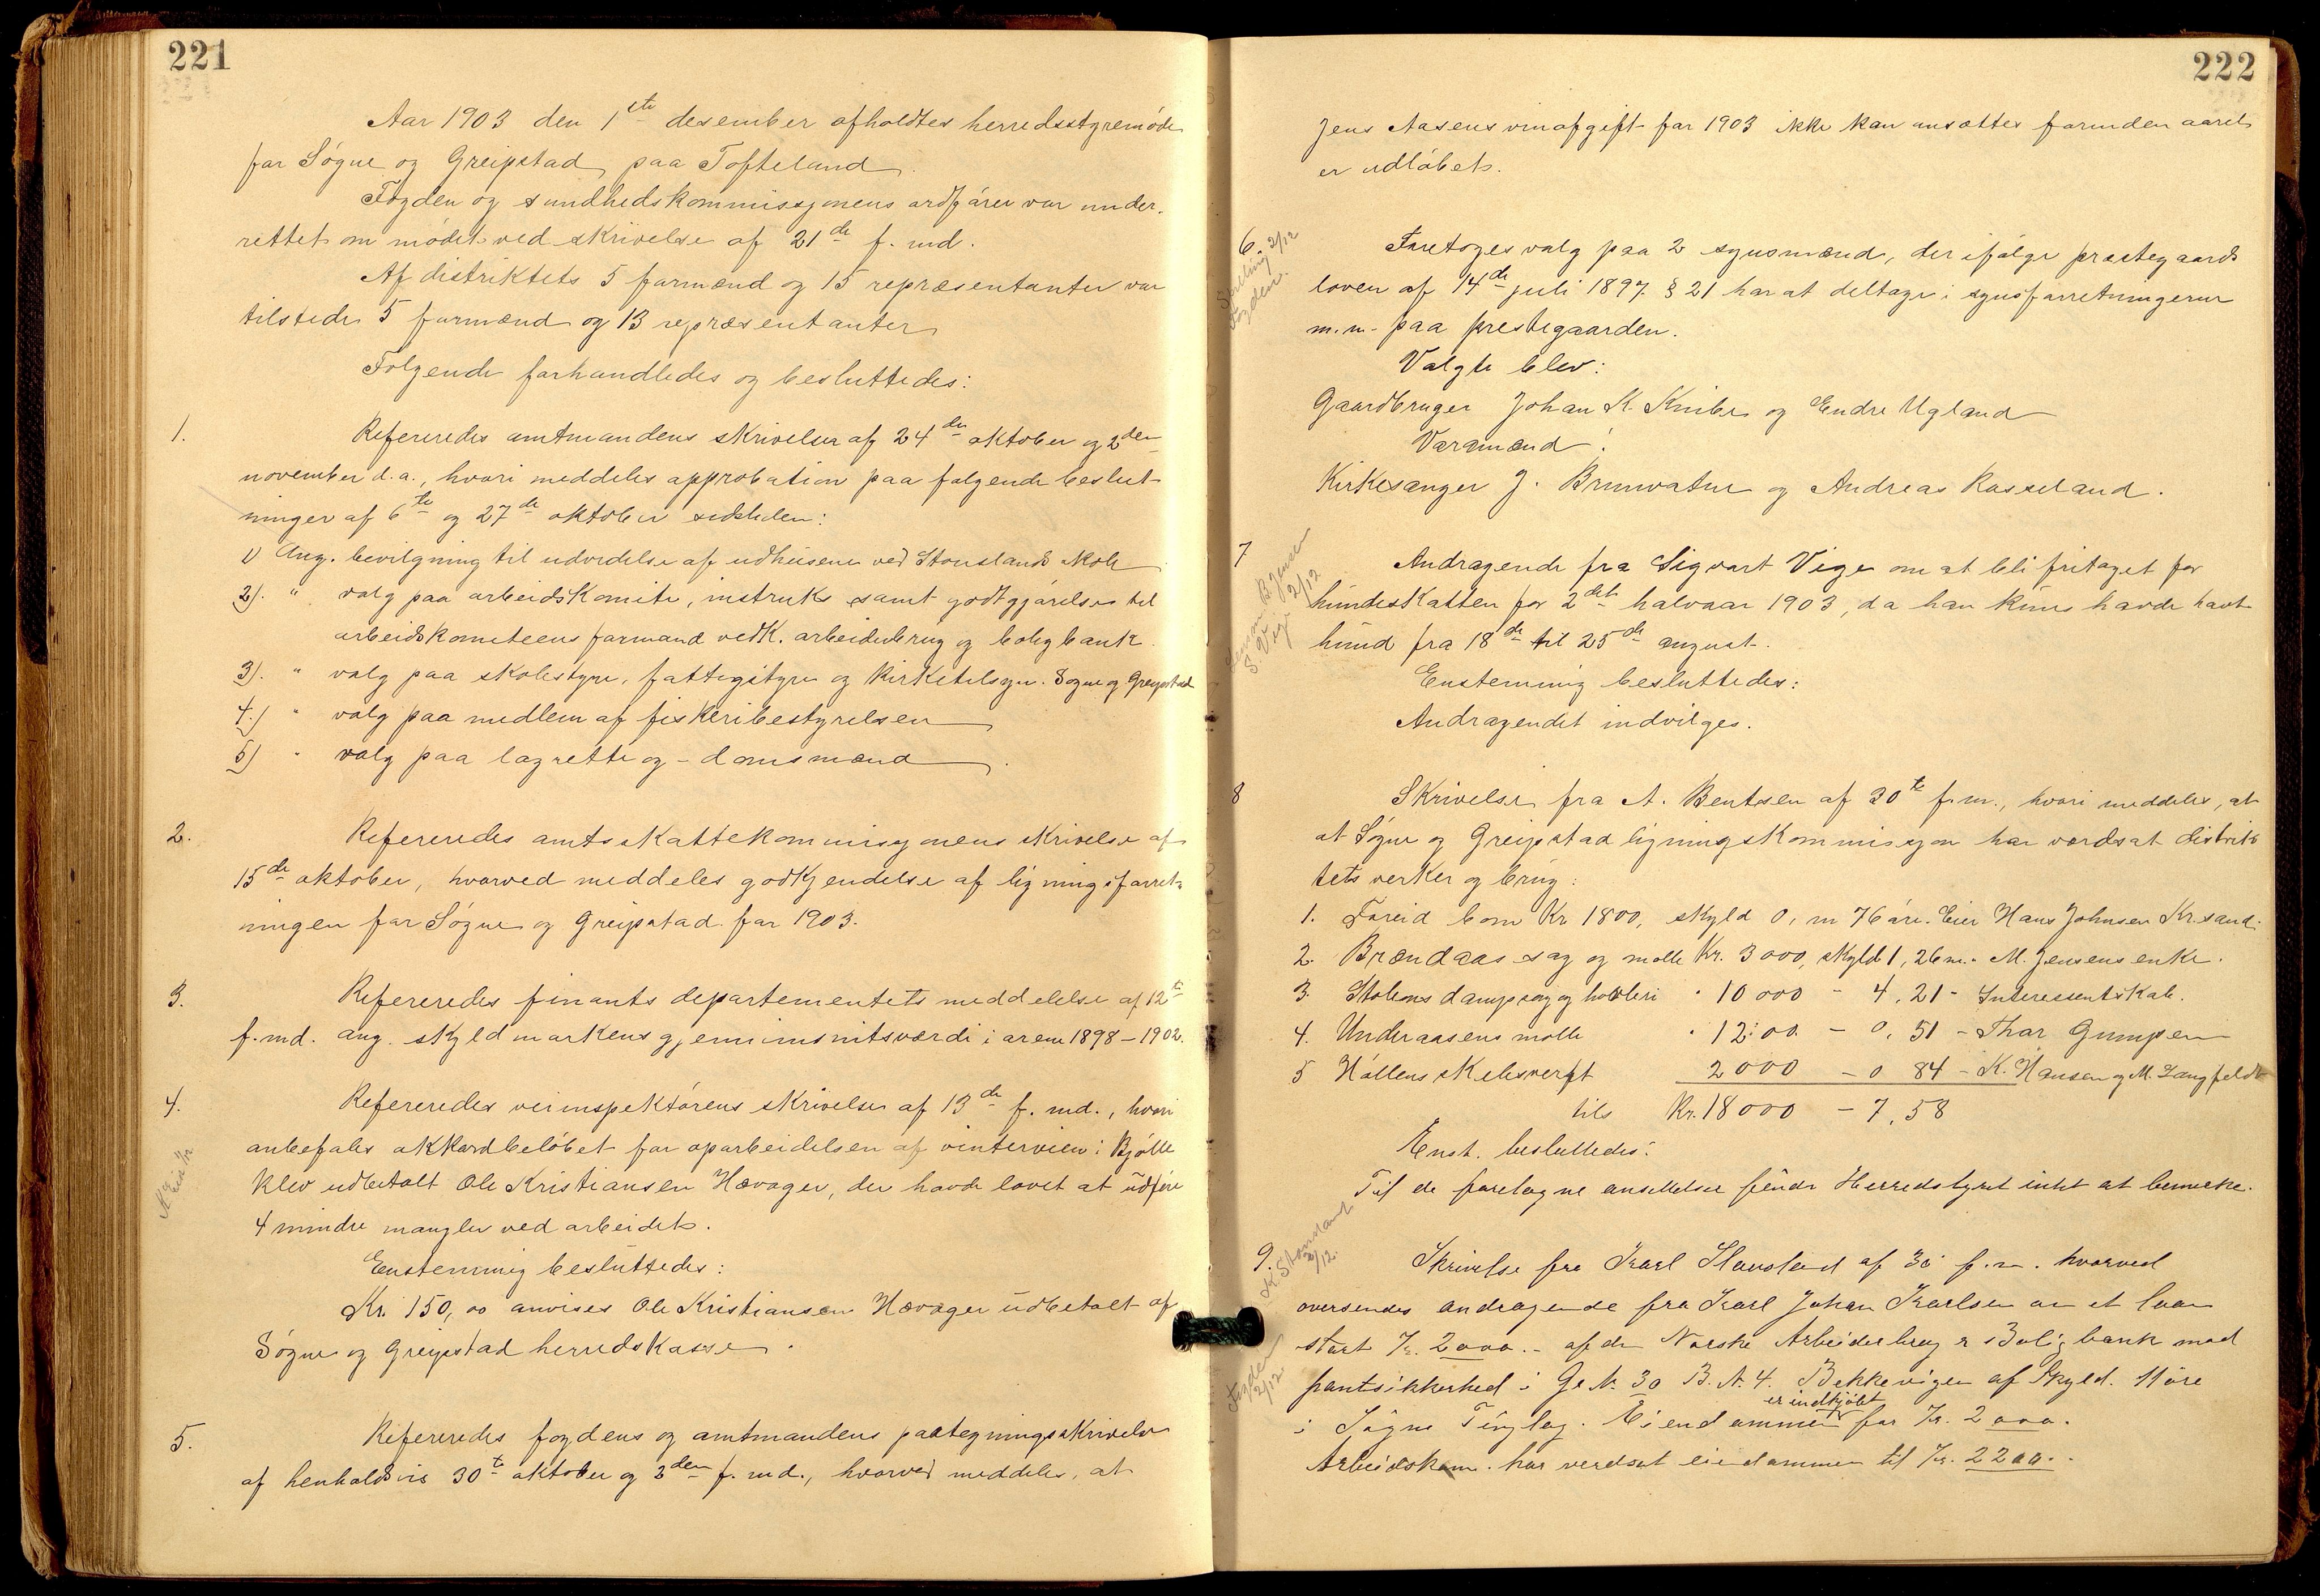 221
Aar 1903 den 1ste desember afholdtes herredsstyremöde
for Sögne og Greipstad paa Tofteland.
Fogden og sundhedskommissjonens ordförer var under-
rettet om mödet ved skrivelse af 21de f. md.
Af distriktets 5 formænd og 15 repræsentanter var
tilstede 5 formænd og 13 repræsentanter
Folgende forhandledes og besluttedes:
1. Refereredes amtmandens skrivelser af 24de oktober og 2den
november d.a., hvori meddeles approbation paa folgende beslut-
ninger af 6te og 27de oktober sidstleden:
1) Ang. bevilgning til udvidelse af udhusene ved Stouslands skole
2). " valg paa arbeidskomite, instruks samt godtgjörelse til
arbeidskomiteens formand vedk. arbeiderbrug og boligbank.
3). " valg paa skolestyre, fattigstyre og kirketilsyn. Sogne og Greipstad
4.) " valg paa medlem af fiskeribestyrelsen
5) " valg paa lagrette og - domsmænd.
2. Refereredes amtsskattekommisjonens skrivelse af
15de oktober, hvorved meddeles godkjendelse af ligningsforret-
ningen for Sögne og Greipstad for 1903.
3. Refereredes finantsdepartementets meddelelse af 12te
f. md. ang. skyldmarkens gjennemsnitsværdi i arene 1898-1902.
4. Refereredes veiinspektörens skrivelse af 13de f. md., hvori
anbefales akkordbelöbet for oparbeidelsen af vinterveien i Bjölle
klev udbetalt Ole Kristiansen Hævager, der havde lovet at udföre
4 mindre mangler ved arbeidet.
Enstemmig besluttedes:
Kr. 150,00 anvises Ole Kristiansen Hævager udbetalt af
Sögne og Greipstad herredskasse.
5. Refereredes fogdens og amtmandens paategningsskrivelse
af henholdsvis 30te oktober og 3den f. md., hvorved meddeles, at
222
Jens Aasens vinafgift for 1903 ikke kan ansættes forinden aaret
er udlöbet.
6. 2/12
Fogden.
Foretoges valg paa 2 synsmænd, der ifölge prestegaards
loven af 14de juli 1897 § 21 har at deltage i synsforretningerne
m.m. paa prestegaarden.
Valgte blev:
Gaardbruger Johan K. Knibe og Endre Ugland
Varamænd:
Kirkesanger J. Brunvatne og Andreas Rosseland.
7 2/12
S. Vige
Andragende fra Sigvart Vige om at bli fritaget for
hundeskatten for 2det halvaar 1903, da han kuns havde havt
hund fra 18de til 25de august.
Enstemmig besluttedes:
Andragendet indvilges.
8 Skrivelse fra A. Bentsen af 30te f.m., hvori meddeles, at
at Sögne og Greipstad ligningskommisjon har værdsat distrik
tets verker og brug:
1. Foreid bom Kr 1800, skyld 0, m 76 öre. Eier Hans Johnsen Kr.sand.
2. Brændaas sag og molle Kr. 3000, skyld 1,26 m. - M. Jensens enke.
3. Stolens dampsag og hovleri " 10000 - 4,21 - Interessentskab.
4. Underaasens molle " 12:00 - 0,51 - Thor Gumpen
5 Höllens skibsverft 2000 - 0 84 - K. Hansen og M. Langfeldt
tils Kr. 18000 - 7,58
Enst. besluttedes:
Til de foretagne ansættelser finder Herredstyret intet at bemerke.
9. K. Stousland 2/12.
Skrivelse fra Karl Stousland af 30 f.m. hvorved
oversendes andragende fra Karl Johan Karlsen om et laan
stort Kr. 2000.- af den Norske Arbeiderbrug & Boligbank mod
Fogden 2/12
pantsikkerhed i G. N. 30 B. N. 4. Bekkevigen af Skyld. 11 öre
i Sögne Tinglag. Eiendommen er indkjöbt for Kr. 2000.
Arbeidskom. har verdsat eiendommen til Kr. 2200.-